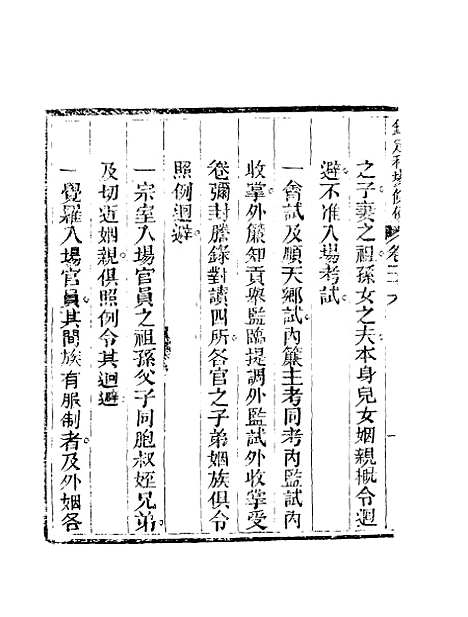 欽定科場條例 卷二十六
之子妻之祖孫女之夫本身兒女姻親概令迴
避不准入場考試
一會試及順天鄉試內簾主考同考內監試內
收掌外簾知貢舉監臨提調外監試外收掌受
卷彌封謄錄對讀四所各官之子弟姻族俱令
照例迴避
一宗室入場官員之祖孫父子同胞叔姪兄弟
及切近姻親俱照例令其迴避
一覺羅入場官員其間族有服制者及外姻各